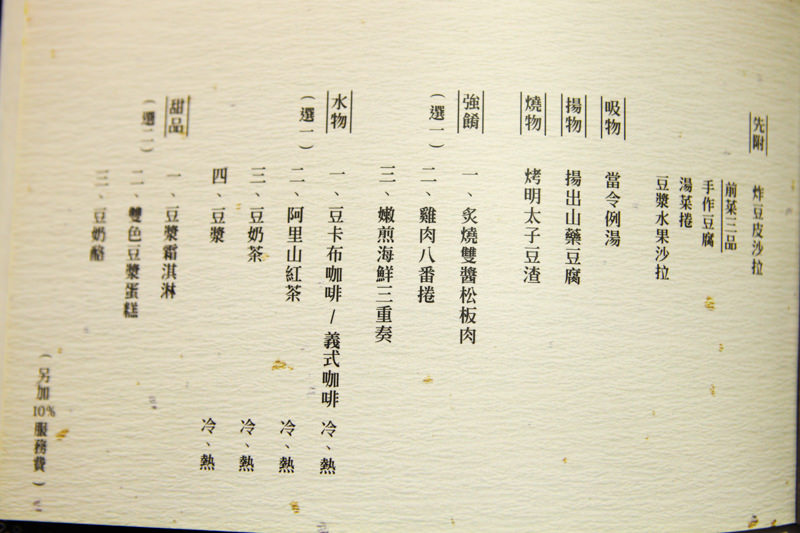 先附
炸豆皮沙拉
前菜三品
手作豆腐
湯菜捲
豆漿水果沙拉
吸物
當令例湯
揚物
揚出山藥豆腐
燒物
烤明太子豆渣
強餚
（選一）
一、炙燒雙醬松板肉
二、雞肉八番捲
三、嫩煎海鮮三重奏
水物
（選一）
一、豆卡布咖啡/義式咖啡 冷、熱
二、阿里山紅茶 冷、熱
三、豆奶茶 冷、熱
四、豆漿 冷、熱
甜品
（選二）
一、豆漿霜淇淋
二、雙色豆漿蛋糕
三、豆奶酪
（另加10%服務費）